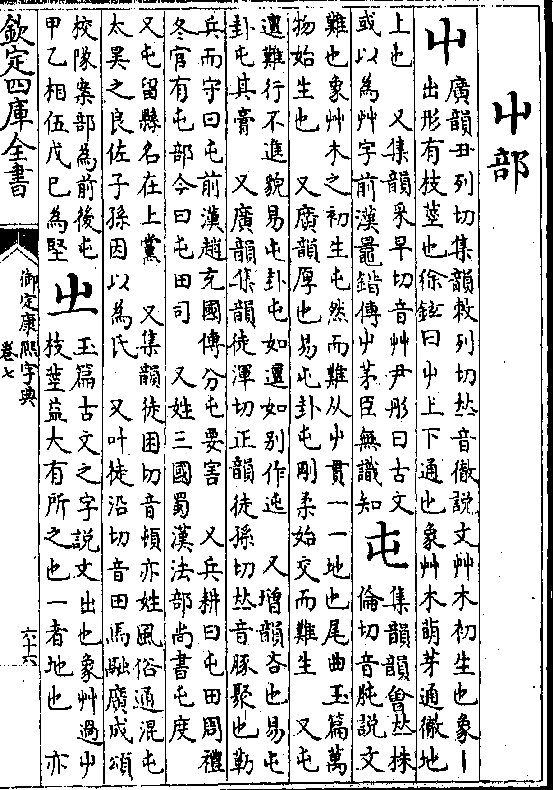 屮部
屮
廣韻丑列切集韻敕列切𠀤音徹說文艸木初生也象丨
出形有枝莖也徐鉉曰屮上下通也象艸木萌芽通徹地
上也 又集韻采早切音艸尹彤曰古文
或以為艸字前漢鼂錯傳屮茅臣無識知
屯
集韻韻會𠀤株
倫切音肫說文
難也象艸木之初生屯然而難从屮貫一一地也尾曲玉篇萬
物始生也 又廣韻厚也易屯卦屯剛柔始交而難生 又屯
邅難行不進貌易屯卦屯如邅如別作迍 又增韻吝也易屯
卦屯其膏 又廣韻集韻徒渾切正韻徒孫切𠀤音豚聚也勒
兵而守曰屯前漢趙充國傳分屯要害 又兵耕曰屯田周禮
冬官有屯部今曰屯田司 又姓三國蜀漢法部尚書屯度
又屯留縣名在上黨 又集韻徒困切音頓亦姓風俗通混屯
太昊之良佐子孫因以為氏 又叶徒沿切音田馬融廣成頌
校隊案部為前後屯
甲乙相伍戊己為堅
㞢
玉篇古文之字說文出也象艸過屮
枝莖益大有所之也一者地也 亦
欽定四庫全書
御定康熙字典
卷七
六十六